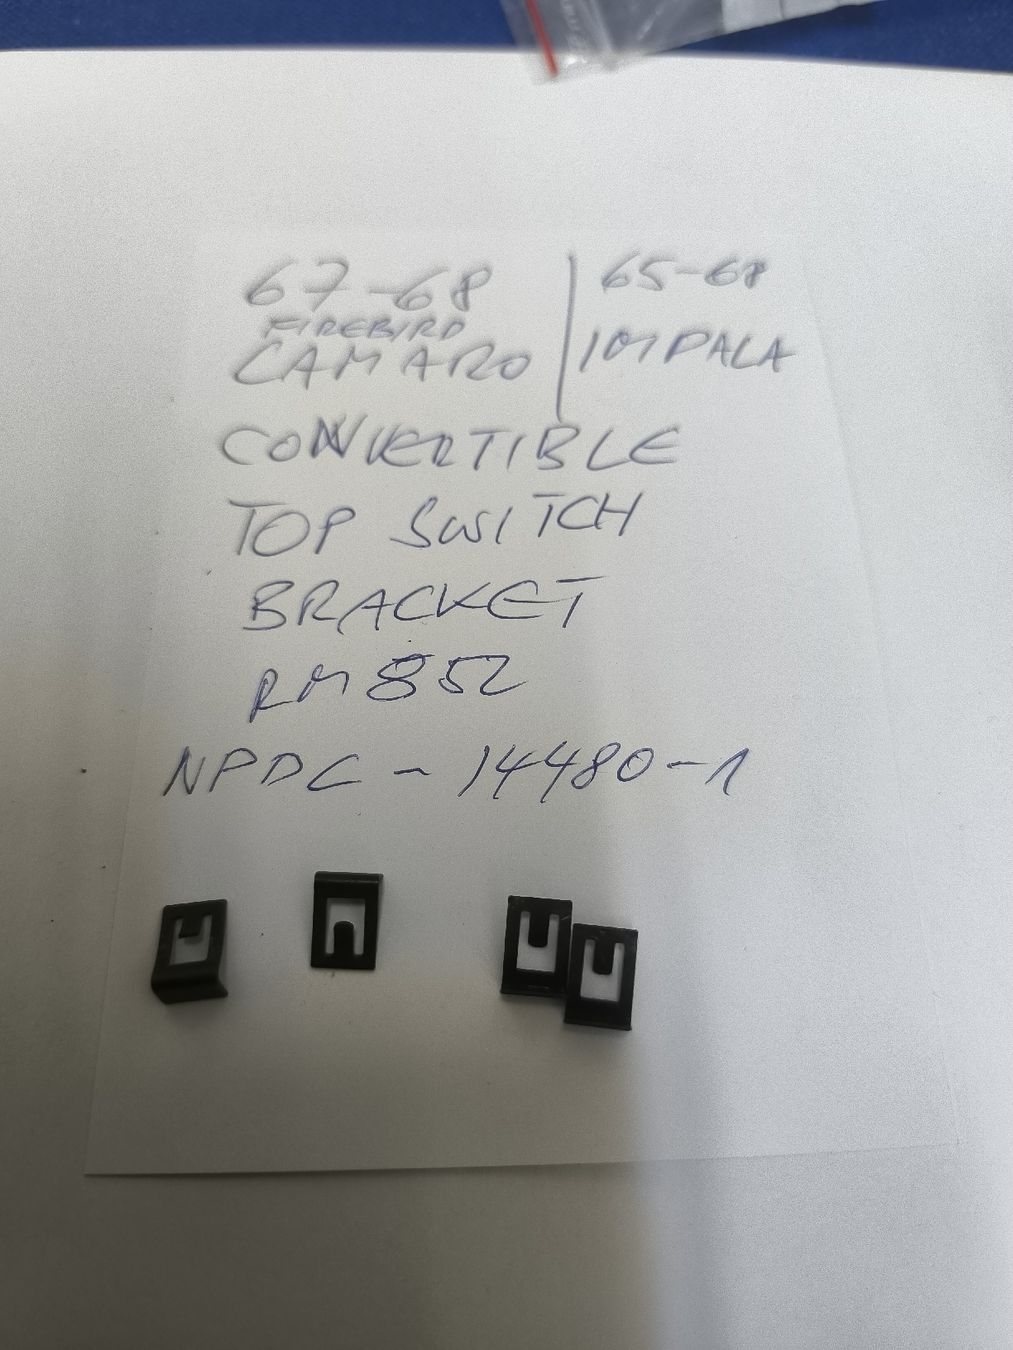 67-68 | 65-68
FIREBIRD
CAMARO | IMPALA
CONVERTIBLE
TOP SWITCH
BRACKET
RM852
NPDC-14480-1